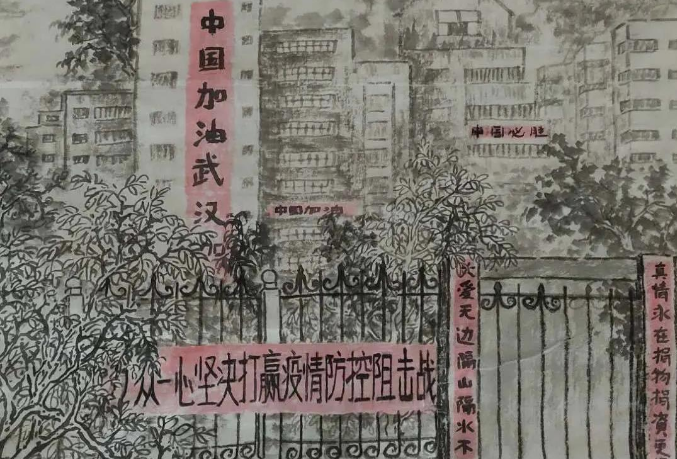 中国加油武汉加
中国加油
中国必胜
众一心坚决打赢疫情防控阻击战
大爱无边隔山隔水不
真情永在捐物捐资更